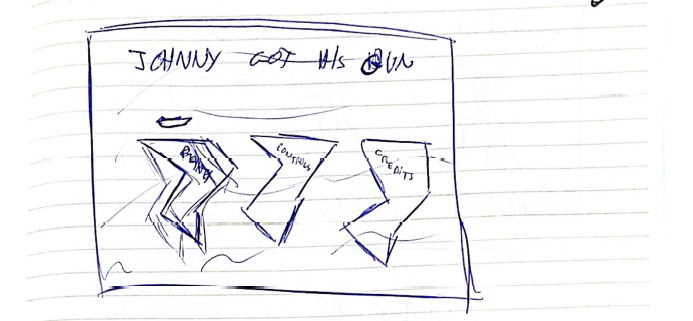 JOHNNY GOT HIS GUN
CONTROLS
CREDITS